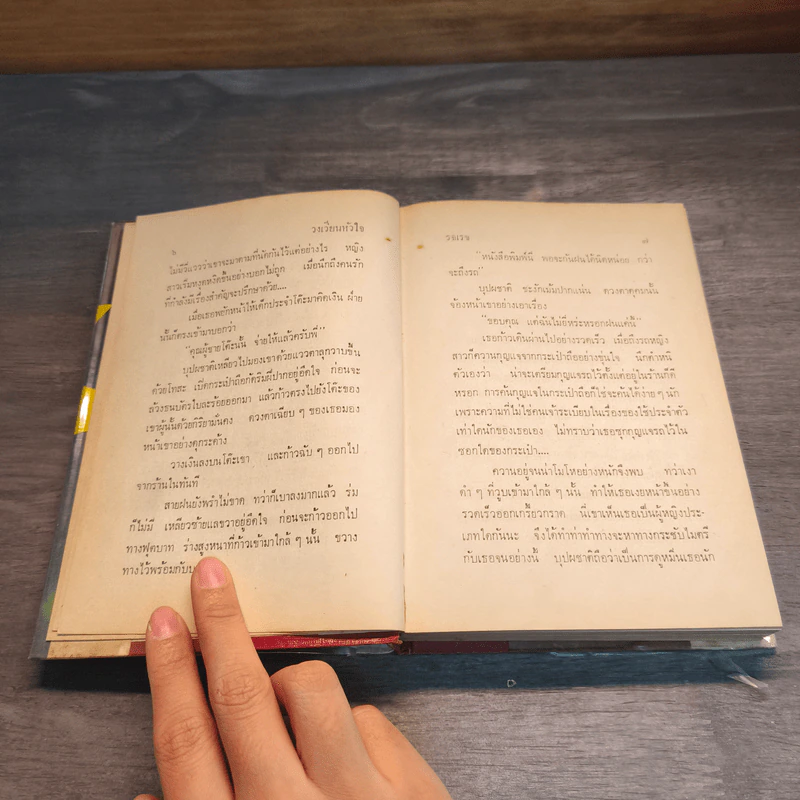 ๖ วงเวียนหัวใจ
ไม่มีวี่แววว่าเขาจะมาตามที่นัดกันไว้แต่อย่างไร หญิง
สาวเริ่มหงุดหงิดขึ้นอย่างบอกไม่ถูก เมื่อนึกถึงคนรัก
ที่กำลังมีเรื่องสำคัญจะปรึกษาด้วย....
เมื่อเธอพยักหน้าให้เด็กประจำโต๊ะมาคิดเงิน ฝ่าย
นั้นก็ตรงเข้ามาบอกว่า
"คุณผู้ชายโต๊ะนั้น จ่ายให้แล้วครับพี่"
บุปผชาติเหลียวไปมองเขาด้วยแววตาลุกวาบขึ้น
ด้วยโทสะ เม็ดกระเป๋าถือกัดริมฝีปากอยู่อึดใจ ก่อนจะ
ล้วงธนบัตรใบละร้อยออกมา แล้วก้าวตรงไปยังโต๊ะของ
เขาผู้นั้นด้วยกิริยามั่นคง ดวงตาเฉียบ ๆ ของเธอมอง
หน้าเขาอย่างดุกระด้าง
วางเงินลงบนโต๊ะเขา และก้าวฉับ ๆ ออกไป
จากร้านในทันที
สายฝนยังพรำไม่ขาด ทว่าก็เบาลงมากแล้ว ร่ม
ก็ไม่มี เหลียวซ้ายแลขวาอยู่อึดใจ ก่อนจะก้าวออกไป
ทางฟุตบาท ร่างสูงหนาที่ก้าวเข้ามาใกล้ ๆ นั้น ขวาง
ทางไว้พร้อมกับ
๗
"หนังสือพิมพ์นี่ พอจะกันฝนได้นิดหน่อย กว่า
จะถึงรถ"
บุปผชาติ ชะงักเม้มปากแน่น ดวงตาดุคมนั้น
จ้องหน้าเขาอย่างเอาเรื่อง
"ขอบคุณ แต่ฉันไม่ยี่หระหรอกฝนแค่นี้"
เธอก้าวเดินผ่านไปอย่างรวดเร็ว เมื่อถึงรถหญิง
สาวก็ควานกุญแจจากกระเป๋าถืออย่างขุ่นใจ นึกตำหนิ
ตัวเองว่า น่าจะเตรียมกุญแจรถไว้ตั้งแต่อยู่ในร้านก็ดี
หรอก การค้นกุญแจในกระเป๋าถือก็ใช่จะค้นได้ง่าย ๆ นัก
เพราะความที่ไม่ใช่คนเจ้าระเบียบในเรื่องของใช้ประจำตัว
เท่าใดนักของเธอเอง ไม่ทราบว่าเธอซุกกุญแจรถไว้ใน
ซอกใดของกระเป๋า....
ควานอยู่จนน่าโมโหอย่างหนักจึงพบ ทว่าเงา
ดำ ๆ ที่วูบเข้ามาใกล้ ๆ นั้น ทำให้เธอเงยหน้าขึ้นอย่าง
รวดเร็วออกเกรี้ยวกราด นี่เขาเห็นเธอเป็นผู้หญิงประ-
เภทใดกันนะ จึงได้ทำท่าทำทางจะหาทางกระชับไมตรี
กับเธอจนอย่างนี้ บุปผชาติถือว่าเป็นการดูหมิ่นเธอนัก